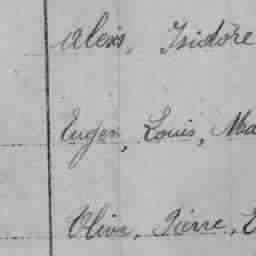 Alexis, Isidore
Eugen, Louis, Ma
Olive, Pierre, E